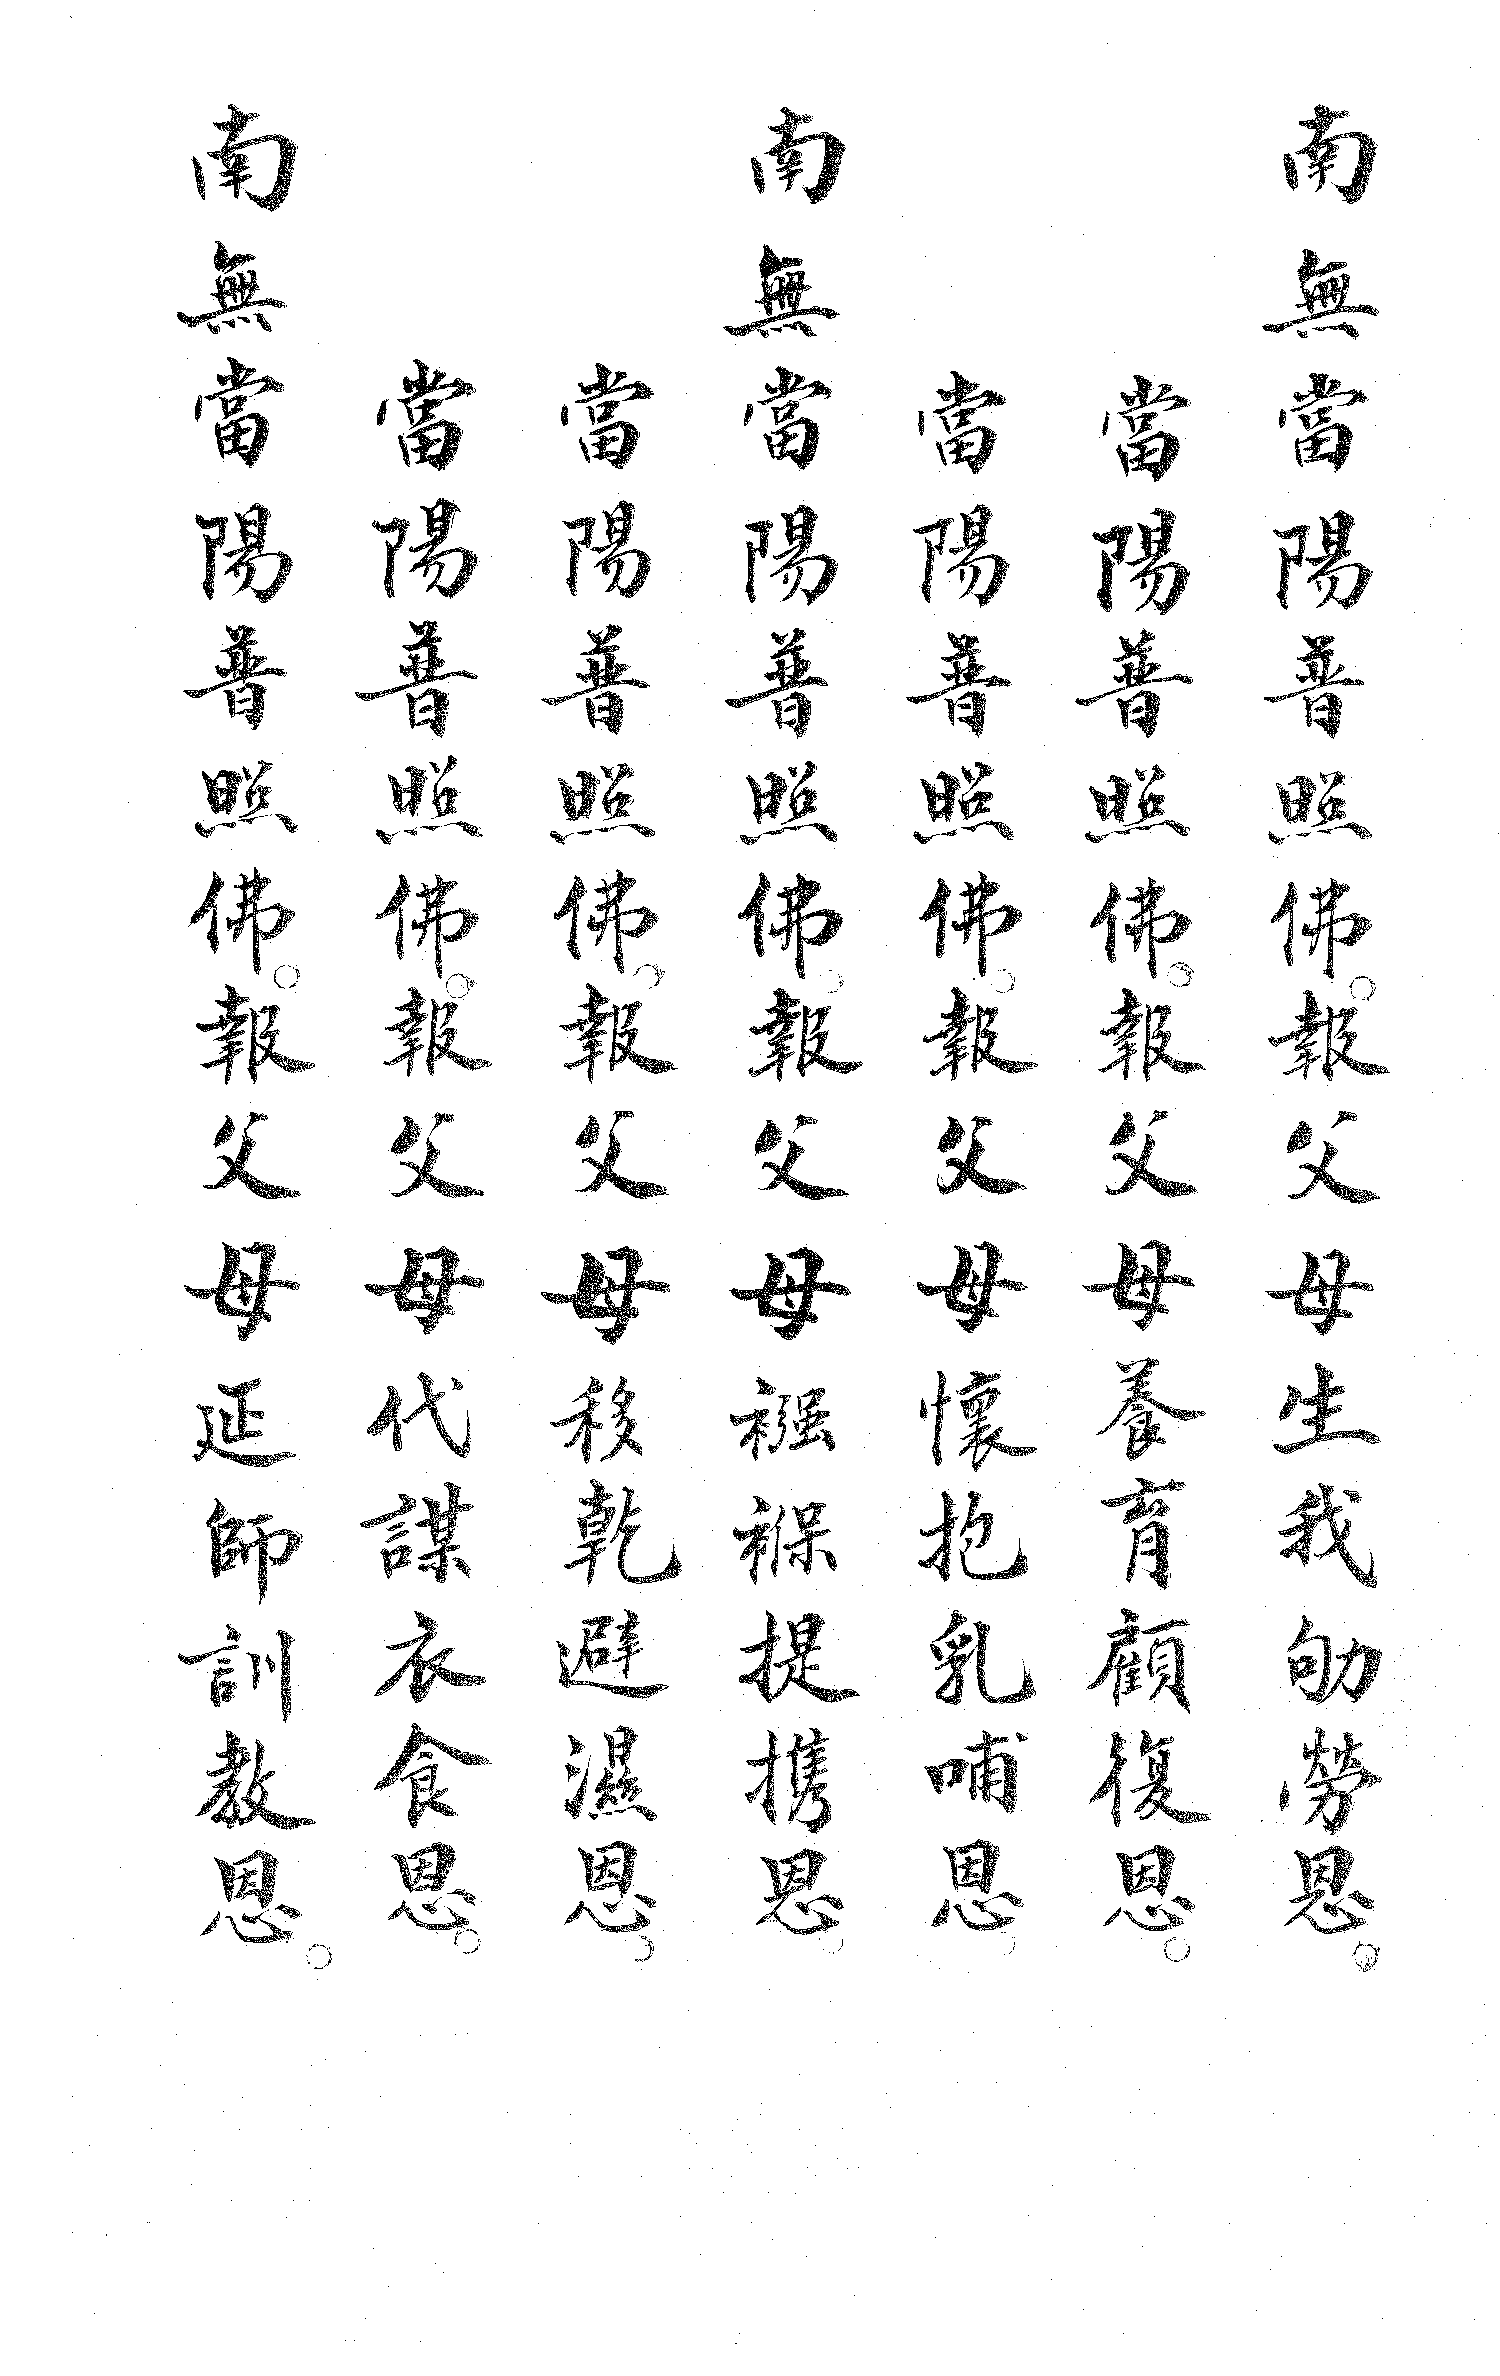 南無當陽普照佛。報父母生我劬勞恩。
當陽普照佛。報父母養育顧復恩。
當陽普照佛。報父母懷抱乳哺恩。
南無當陽普照佛。報父母襁褓提携恩。
當陽普照佛。報父母移乾避濕恩。
當陽普照佛。報父母代謀衣食恩。
南無當陽普照佛。報父母延師訓教恩。